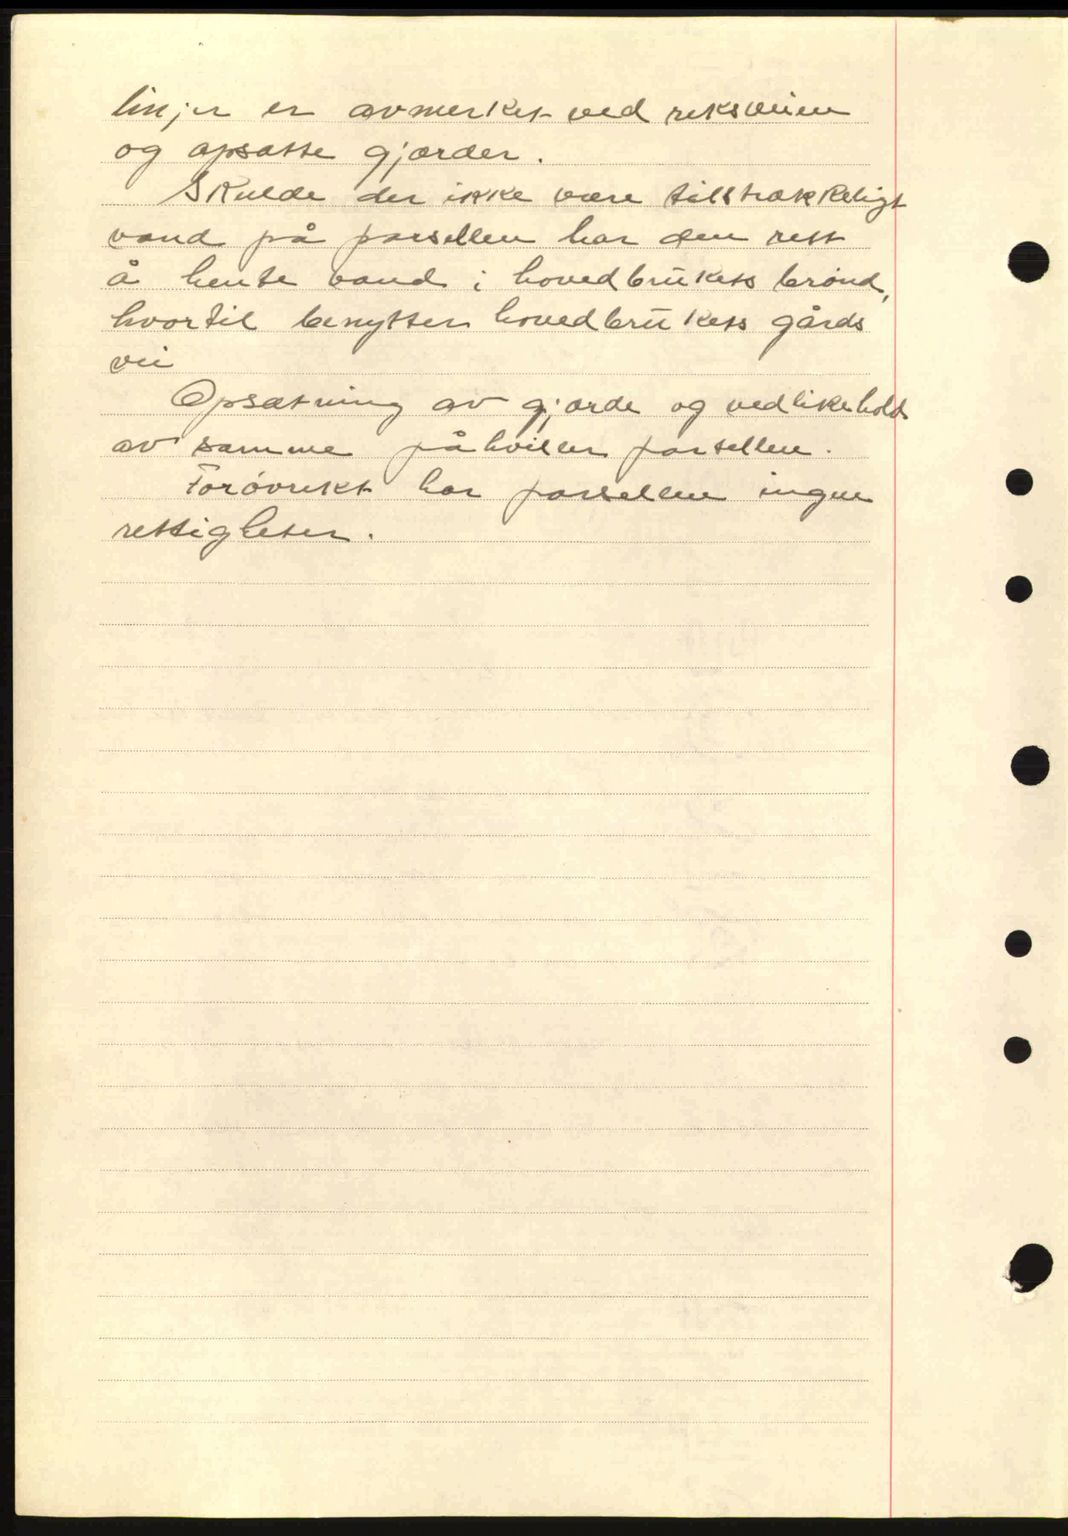 linjer er avmerket ved reksveien
og opsatte gjærder.
Skulde der ikke være tilstrækkeligt
vand på parsellen har den rett
å hente vand i hovedbrukets brønd,
hvortil benyttes hovedbrukets gårds
vei
Opsætning av gjærde og vedlikehold
av samme påhviler parsellen.
Forøvrikt har parsellen ingen
rettigheter.